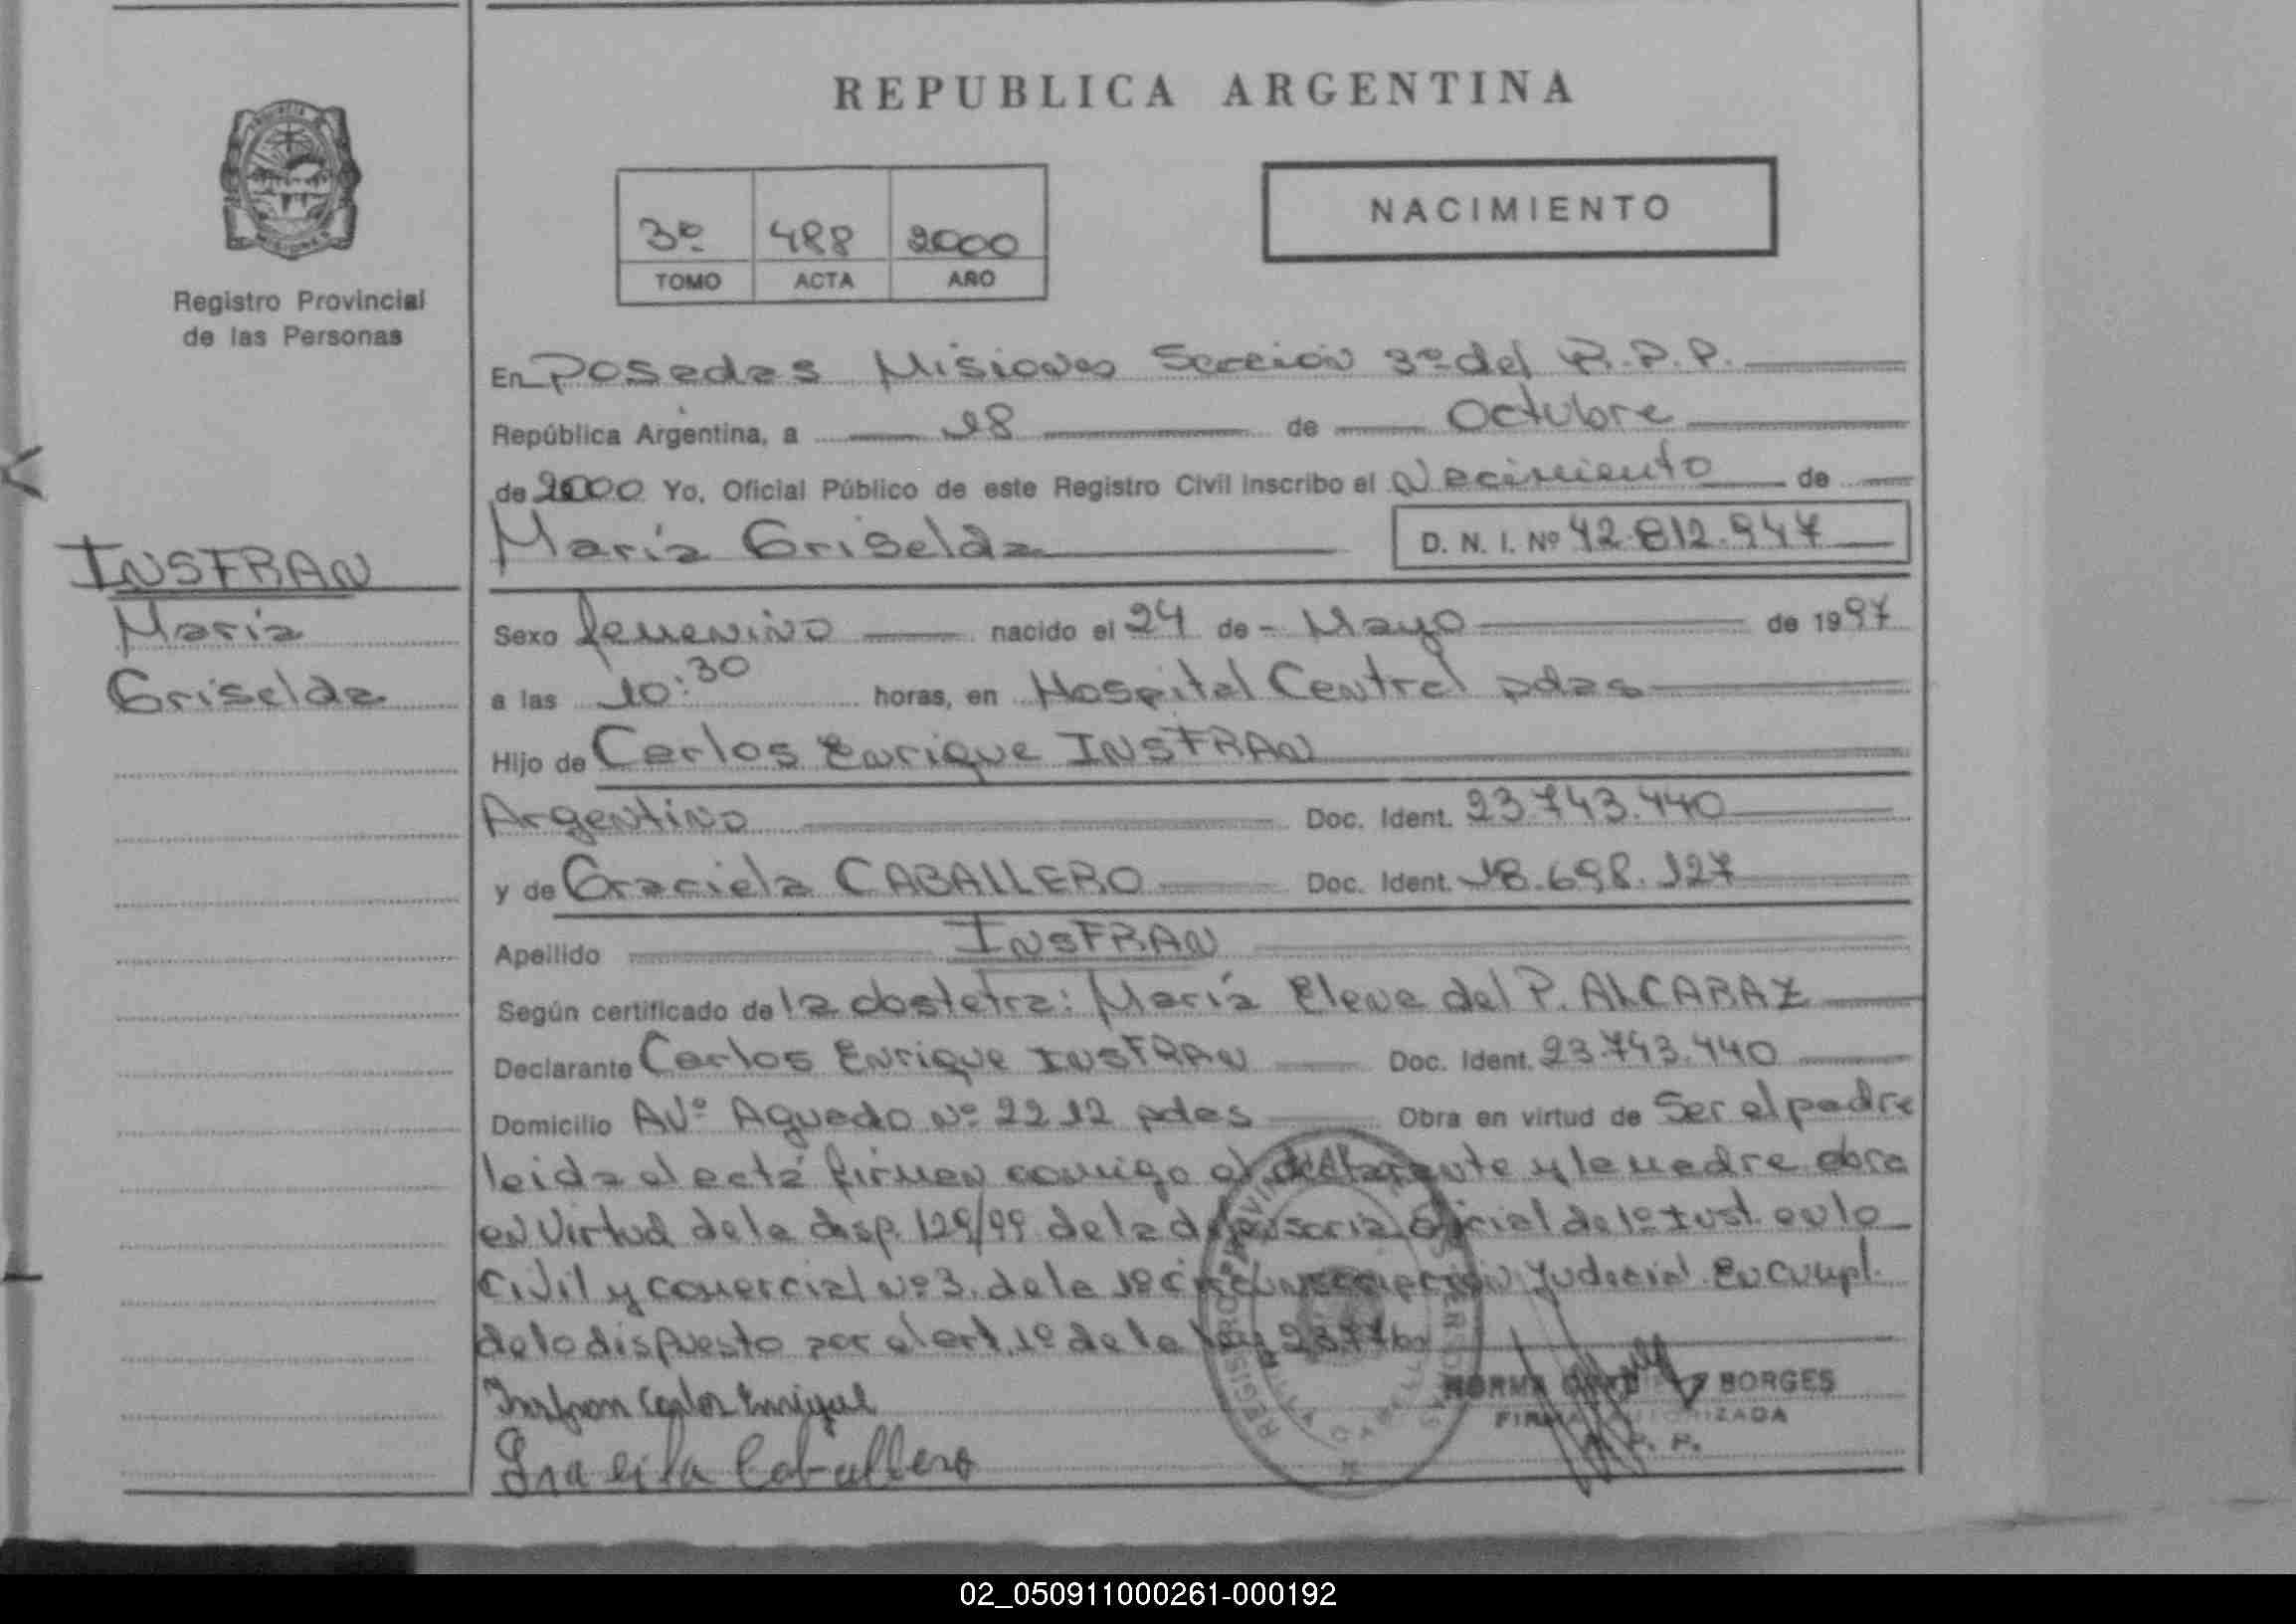 REPUBLICA ARGENTINA
3º 488 2000
TOMO ACTA AÑO
NACIMIENTO
Registro Provincial
de las Personas
En Posadas Misiones Sección 3º del R.P.P.
República Argentina, a 18 de Octubre
de 2000 Yo, Oficial Público de este Registro Civil inscribo el Nacimiento de
María Griselda D. N. I. Nº 42.812.947
INSFRAN
María
Griselda
Sexo femenino nacido el 24 de Mayo de 1997
a las 10:30 horas, en Hospital Central pdas
Hijo de Carlos Enrique INSFRAN
Argentino Doc. Ident. 23.743.440
y de Graciela CABALLERO Doc. Ident. 18.698.127
Apellido INSFRAN
Según certificado de la obstetra: María Elena del P. ALCARAZ
Declarante Carlos Enrique INSFRAN Doc. Ident. 23.743.440
Domicilio Avº Aguado Nº 2212 pdas Obra en virtud de Ser el padre
leida el acta firman conmigo el declarante y la madre obra
en Virtud de la disp. 129/99 de la defensoria oficial de 1º Inst. en lo
Civil y comercial Nº 3. de la 1º circunscripción Judicial En Cumpl.
de lo dispuesto por el art. 1º de la ley
Insfran Carlos Enrique
Graciela Caballero
NORMA BORGES
FIRMA AUTORIZADA
R. P. P.
02_050911000261-000192